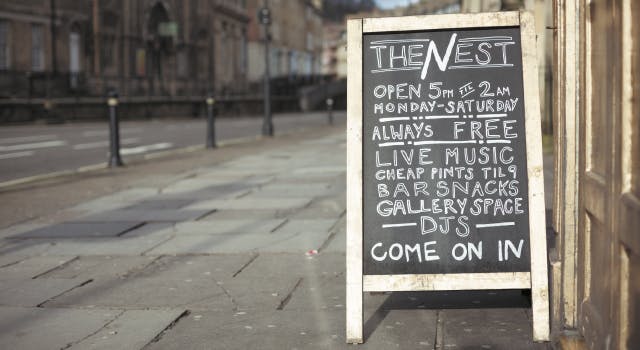 THE NEST
OPEN 5PM TIL 2AM
MONDAY-SATURDAY
ALWAYS FREE
LIVE MUSIC
CHEAP PINTS TIL 9
BAR SNACKS
GALLERY SPACE
DJS
COME ON IN